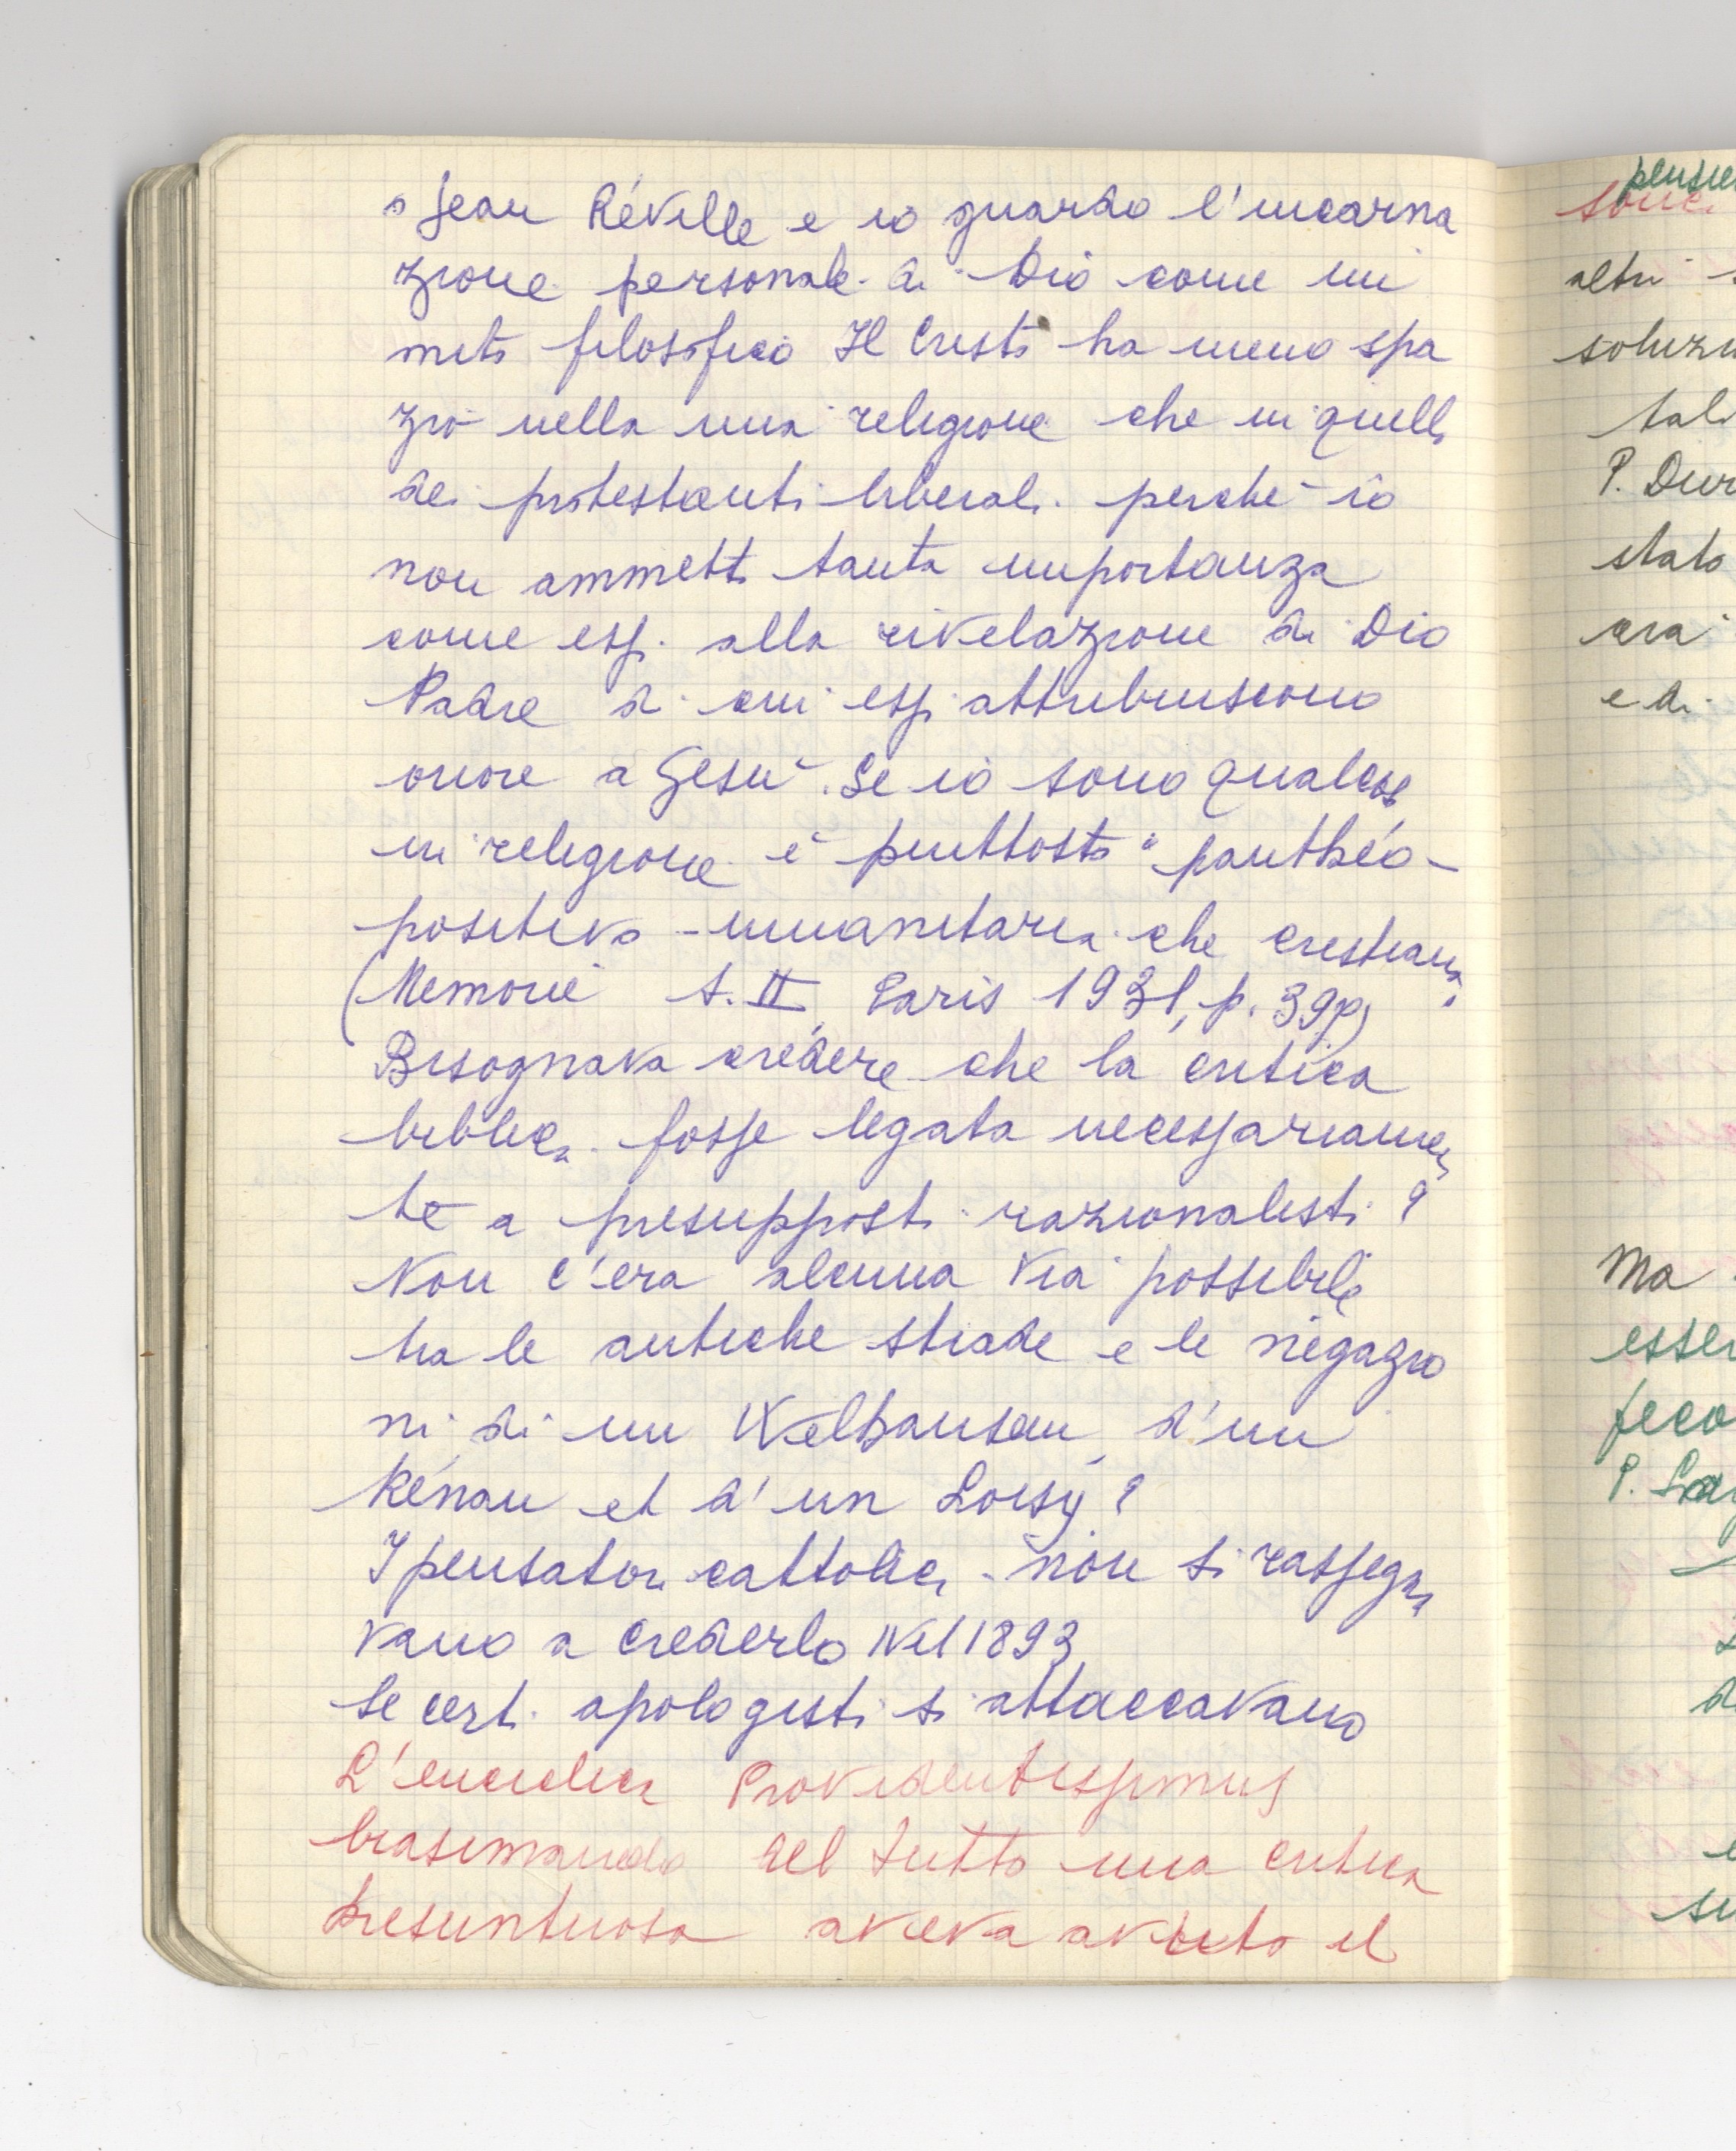 o Jean Réville e io guardo l'incarna
zione personale di Dio come un
mito filosofico Il Cristo ha meno spa
zio nella mia religione che in quella
dei protestanti liberali perché io
non ammetto tanta importanza
come essi alla rivelazione di Dio
Padre di cui essi attribuiscono
onore a Gesù. Se io sono qualcosa
in religione è piuttosto "panthéo-
positivo-umanitaria che cristiana".
(Memorie t. II Paris 1931, p. 397)
Bisognava credere che la critica
biblica fosse legata necessariamen
te a presupposti razionalisti?
Non c'era alcuna via possibile
tra le antiche strade e le negazio
ni di un Welhausen, d'un
Rénan et d'un Loisy?
I pensatori cattolici non si rassegna
vano a crederlo Nel 1893
Se certi apologisti si attaccavano
L'enciclica Providentissimus
biasimando del tutto una critica
presuntuosa aveva avuto il
pensie
altri
soluzi
tali
P. Dur
stato
era
e di
Ma
esser
feco
P. Lag